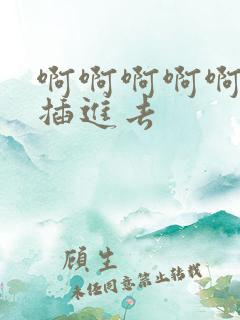 啊啊啊啊啊
插進去
顾生
未经同意禁止转载